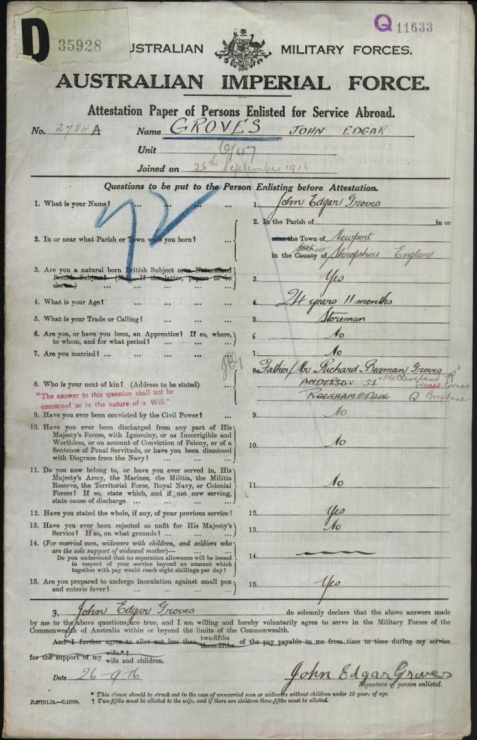 D 35928
Q 11633
AUSTRALIAN MILITARY FORCES.
AUSTRALIAN IMPERIAL FORCE.
Attestation Paper of Persons Enlisted for Service Abroad.
No. 2784A Name GROVES JOHN EDGAR
Unit 6/47
Joined on 26th September 1916
Questions to be put to the Person Enlisting before Attestation.
1. What is your Name? ... 1. John Edgar Groves
2. In or near what Parish or Town were you born? ... 2. In the Parish of in or
near the Town of Newport
in the County of Shropshire England
3. Are you a natural born British Subject or a Naturalised
British Subject? (N.B.—If the latter, papers to be
shown.) ... 3. Yes
4. What is your Age? ... 4. 24 years 11 months
5. What is your Trade or Calling? ... 5. Storeman
6. Are you, or have you been, an Apprentice? If so, where,
to whom, and for what period? ... 6. No
7. Are you married? ... 7. No
8. Who is your next of kin? (Address to be stated) 8. Father/Mr Richard Groves
ANDERSON ST
ROCKHAMPTON Q Brisbane
"The answer to this question shall not be
construed as in the nature of a Will."
9. Have you ever been convicted by the Civil Power? ... 9. No
10. Have you ever been discharged from any part of His
Majesty's Forces, with Ignominy, or as Incorrigible and
Worthless, or on account of Conviction of Felony, or of a
Sentence of Penal Servitude, or have you been dismissed
with Disgrace from the Navy? ... 10. No
11. Do you now belong to, or have you ever served in, His
Majesty's Army, the Marines, the Militia, the Militia
Reserve, the Territorial Force, Royal Navy, or Colonial
Forces? If so, state which, and if not now serving,
state cause of discharge ... 11. No
12. Have you stated the whole, if any, of your previous service? 12. Yes
13. Have you ever been rejected as unfit for His Majesty's
Service? If so, on what grounds? ... 13. No
14. (For married men, widowers with children, and soldiers who
are the sole support of widowed mother)—
Do you understand that no separation allowance will be issued
in respect of your service beyond an amount which
together with pay would reach eight shillings per day? 14.
15. Are you prepared to undergo inoculation against small pox
and enteric fever? ... 15. Yes
I, John Edgar Groves do solemnly declare that the above answers made
by me to the above questions are true, and I am willing and hereby voluntarily agree to serve in the Military Forces of the
Commonwealth of Australia within or beyond the limits of the Commonwealth.
And I further agree to allot not less than two-fifths three-fifths of the pay payable to me from time to time during my service
for the support of my wife* wife and children.
Date 26-9-16 John Edgar Groves
Signature of person enlisted.
* This clause should be struck out in the case of unmarried men or widowers without children under 18 years of age.
† Two-fifths must be allotted to the wife, and if there are children three-fifths must be allotted.